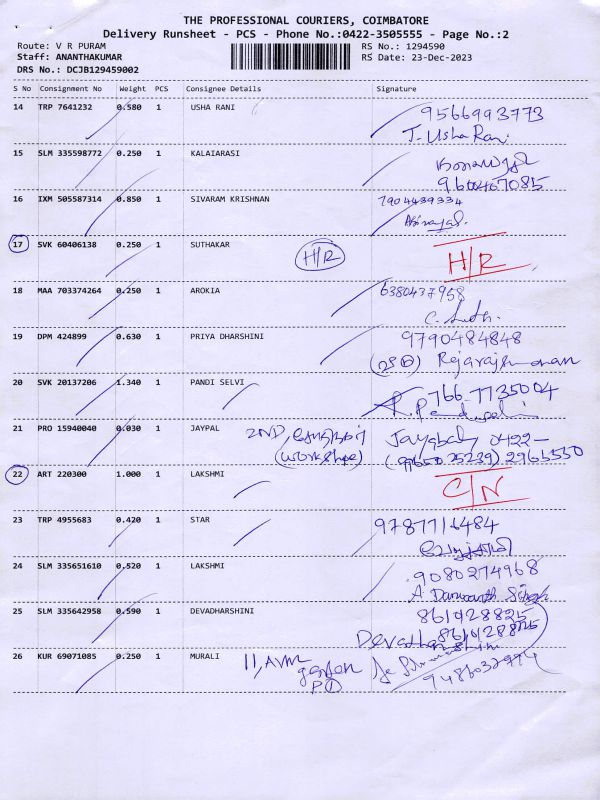 THE PROFESSIONAL COURIERS, COIMBATORE
Delivery Runsheet - PCS - Phone No.:0422-3505555 - Page No.:2
Route: V R PURAM
RS No.: 1294590
Staff: ANANTHAKUMAR
RS Date: 23-Dec-2023
DRS No.: DCJB129459002
S No Consignment No Weight PCS Consignee Details Signature
14 TRP 7641232 0.580 1 USHA RANI 9566993773
J. Usha Rani
15 SLM 335598772 0.250 1 KALAIARASI
9600467085
16 IXM 505587314 0.850 1 SIVARAM KRISHNAN 7904439334
17 SVK 60406138 0.250 1 SUTHAKAR H/R H/R
18 MAA 703374264 0.250 1 AROKIA 6380437958
19 DPM 424899 0.630 1 PRIYA DHARSHINI 9790484848
20 SVK 20137206 1.340 1 PANDI SELVI 766-7735004
21 PRO 15940040 0.030 1 JAYPAL 2ND, Jayabal 0422-
(workshop) (9965025239) 2965550
22 ART 220300 1.000 1 LAKSHMI C/N
23 TRP 4955683 0.420 1 STAR 9787716484
24 SLM 335651610 0.520 1 LAKSHMI 9080274968
A. Singh
25 SLM 335642958 0.590 1 DEVADHARSHINI 861428825
Devadharshini
26 KUR 69071085 0.250 1 MURALI 11, AVM
garden